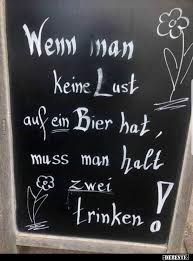 Wenn man
keine Lust
auf ein Bier hat,
muss man halt
zwei
trinken!
DEBESTE